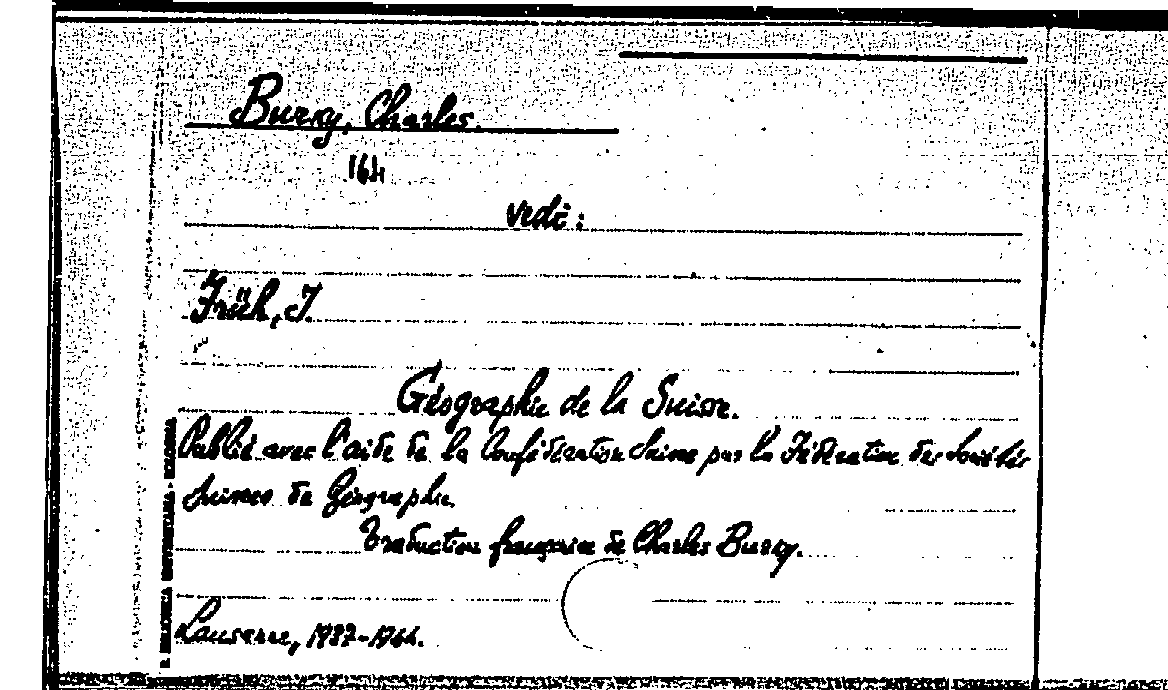 Burky, Charles.
164
vedi:
Früh, J.
Géographie de la Suisse.
Publié avec l'aide de la Confédération Suisse par la Fédération des Sociétés
Suisses de Géographie.
Traduction française de Charles Burky.
Lausanne, 1937-1941.
R. BIBLIOTECA UNIVERSITARIA - BOLOGNA